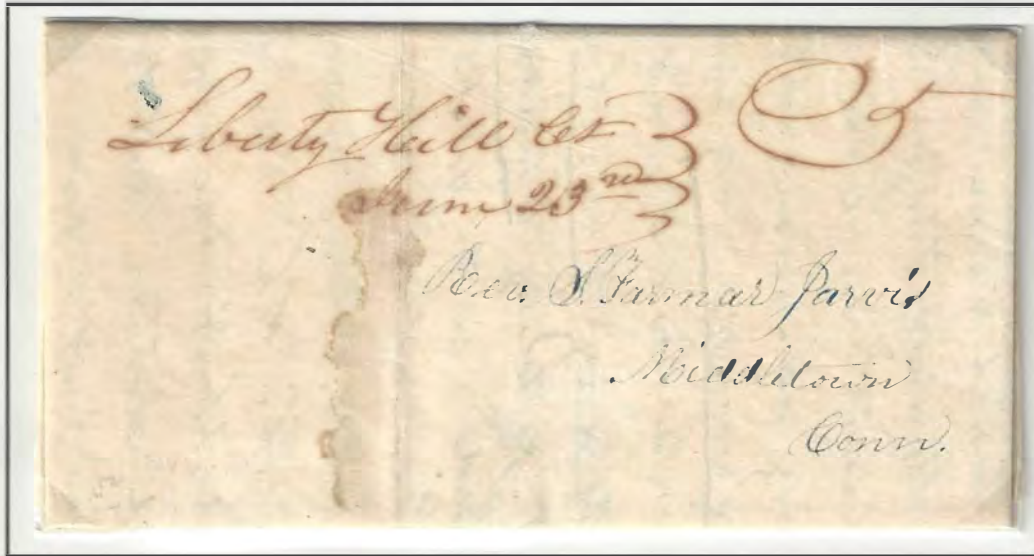 Liberty Hill Ct 5
June 23rd
Rev. S. Farmar Jarvis
Middletown
Conn.